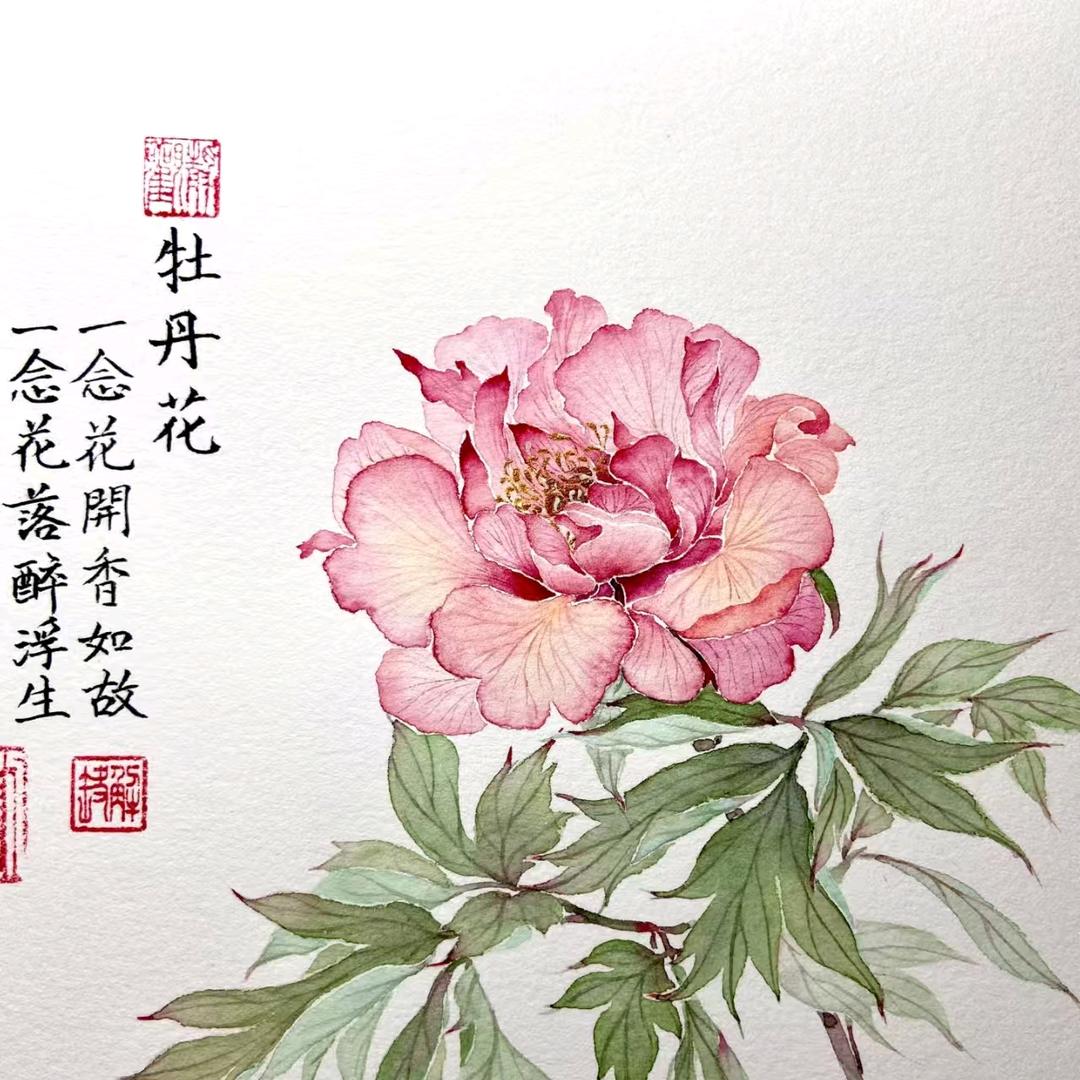 牡丹花
一念花開香如故
一念花落醉浮生